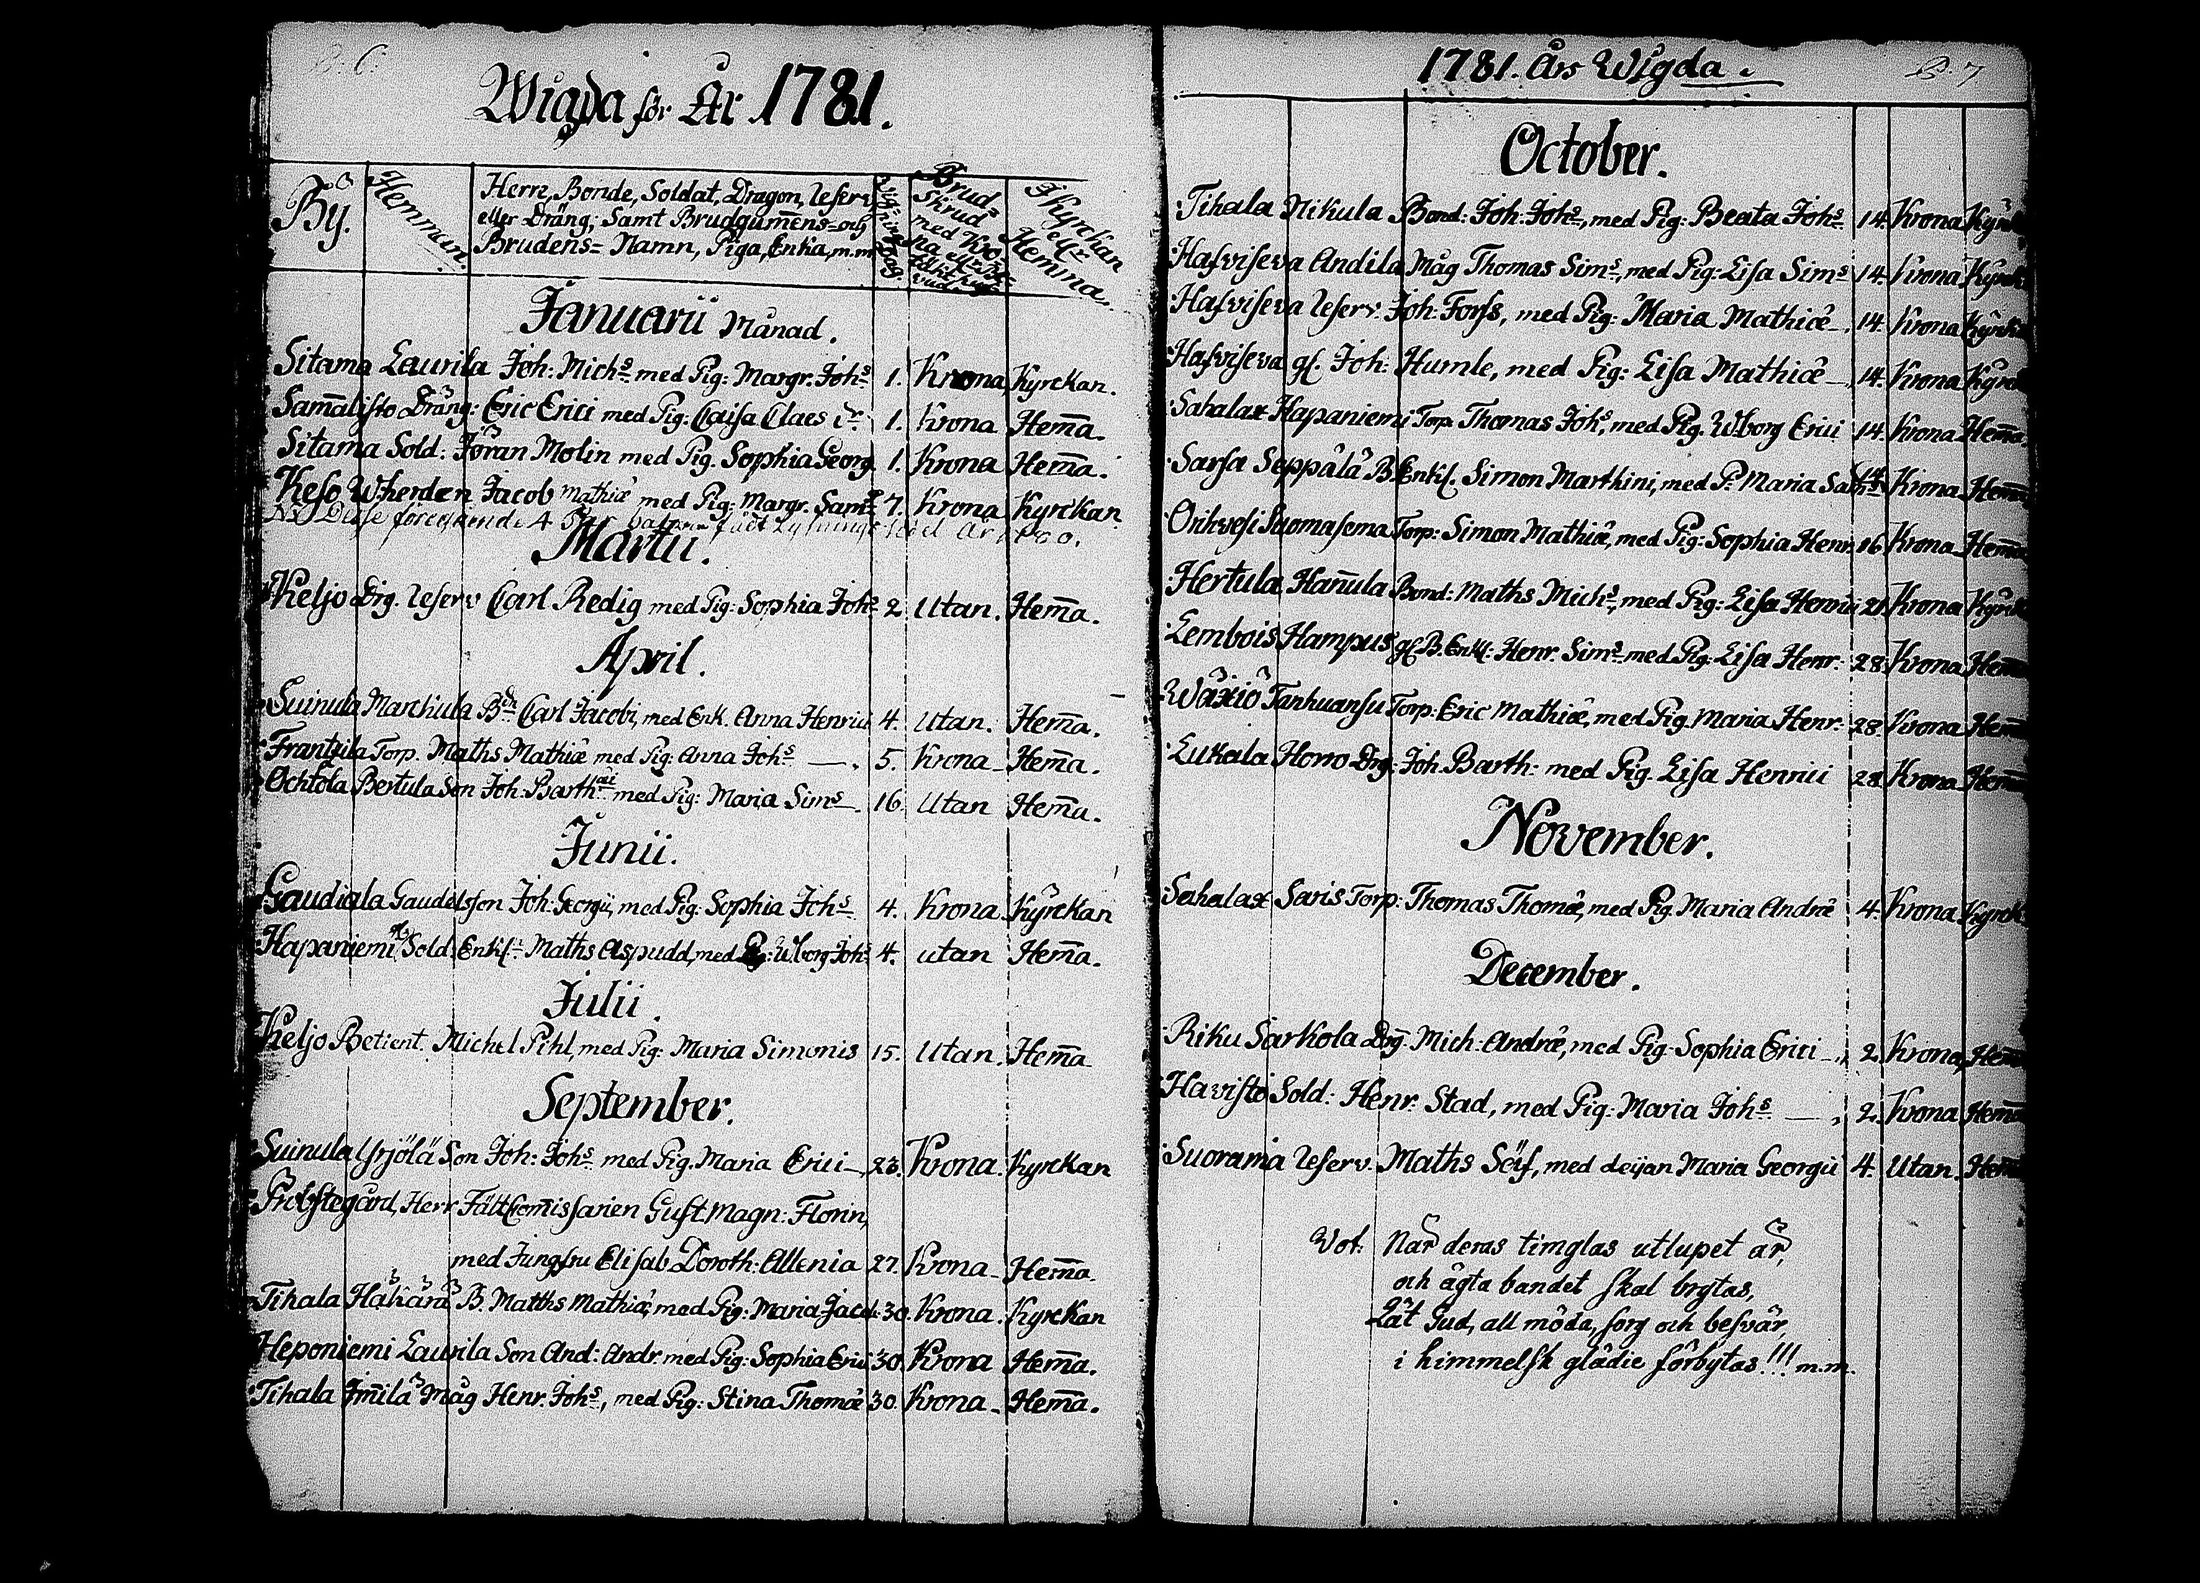 Wigda för År 1781.
By. Hemman. Herr, Bonde, Soldat, Dragon, Reserv,
eller Dräng; Samt Brudgum̄ens= och
Brudens= Namn, Piga, Enkia, m.m.
Brud= Skrud med Kro=
I Kyrckan ellr Hemma.
Januarii Månad.
Sitama Laurila Joh: Michs med Pig: Margr. Johs 1. Krona Kyrckan.
Sam̄alisto Dräng: Eric Erici med Pig: Caisa Claes dr. 1. Krona Hem̄a.
Sitama Sold: Jöran Molin med Pig. Sophia Georg. 1. Krona Hem̄a.
Keso Wherden Jacob Mathiæ med Pig: Margr. Sams 7. Krona Kyrckan
Nb Desse föregående 4 Par hafwa fådt Lysnings
Martii.
Keljo Drg. Reserv Carl Redig med Pig: Sophia Johs 2. Utan. Hem̄a.
April.
Suinula Marckula Bdn Carl Jacobi, med Enk. Anna Henrici 4. Utan. Hem̄a.
Frantzila Torp. Maths Mathiæ med Pig: Anna Johs —. 5. Krona Hem̄a.
Ochtola Bertula Son Joh: Barthæi med Pig: Maria Sims. 16. Utan Hem̄a.
Junii.
Gaudiala Gaudelsson Joh: Georgii, med Pig: Sophia Johs 4. Krona Kyrckan
Hapaniemi Sold. Enkl: Maths Aspudd, med Pig: Wborg Johs 4. utan Hem̄a.
Julii.
Keljo Betient. Michel Pihl, med Pig: Maria Simonis 15. Utan. Hem̄a
September.
Suinula Yrjölä Son Joh: Johs med Pig. Maria Erici—, 23. Krona. Kyrckan
Probstegård, Herr Fält Com̄issarien Gust. Magn: Florin,
med Jungfru Elisab. Doroth: Allenia 27. Krona Hem̄a.
Tihala Håkärä B. Matths Mathiæ, med Pig: Maria Jacob: 30. Krona. Kyrckan
Heponiemi Laurila Son And: Andr. med Pig: Sophia Erici 30. Krona Hem̄a.
Tihala Im̄ilä Måg Henr. Johs, med Pig: Stina Thomæ 30. Krona Hem̄a.
1781. Års Wigda. P. 7
October.
Tihala Nikula Bond: Joh: Johs, med Pig: Beata Johs 14. Krona
Hafviseva Andila Måg Thomas Sims, med Pig: Lisa Sims 14. Krona
Hafviseva Reserv. Joh: Forss, med Pig: Maria Mathiæ —. 14. Krona
Hafviseva gl. Joh: Humle, med Pig: Lisa Mathiæ —. 14. Krona
Sahalax Hapaniemi Torp. Thomas Johs, med Pig. Wborg Erici 14. Krona Hem̄a
Sarsa Seppälä B. Enkl. Simon Marthini, med P. Maria 14. Krona Hem̄a
Orihvesi Suomasema Torp: Simon Mathiæ, med Pig: Sophia Henr. 16 Krona Hem̄a
Hertula Han̄ula Bond: Maths Michs, med Pig: Lisa Henrici 21. Krona
Lembois Hampus gl B. Enkl: Henr. Sims med Pig: Lisa Henr: 28. Krona Hem̄a
Wäxiö Tanhuansu Torp: Eric Mathiæ, med Pig. Maria Henr: 28. Krona Hem̄a
Lukala Horro Drg: Joh. Barth: med Pig. Lisa Henrici 28. Krona Hem̄a
November.
Sahalax Saris Torp: Thomas Thomæ, med Pig. Maria Andræ 4. Krona
December.
Riku Sarkola Drg. Mich: Andræ, med Pig. Sophia Erici —. 2. Krona Hem̄a
Havisto Sold: Henr: Stad, med Pig: Maria Johs —, 2. Krona Hem̄a
Suorama Reserv. Maths Söif, med deijan Maria Georgii 4. Utan. Hem̄a
Vot: När deras timglas utlupet är,
och ägta bandet skal brytas,
Låt Gud, all möda, sorg och besvär,
i himmelsk glädie förbytas!!! m.m.